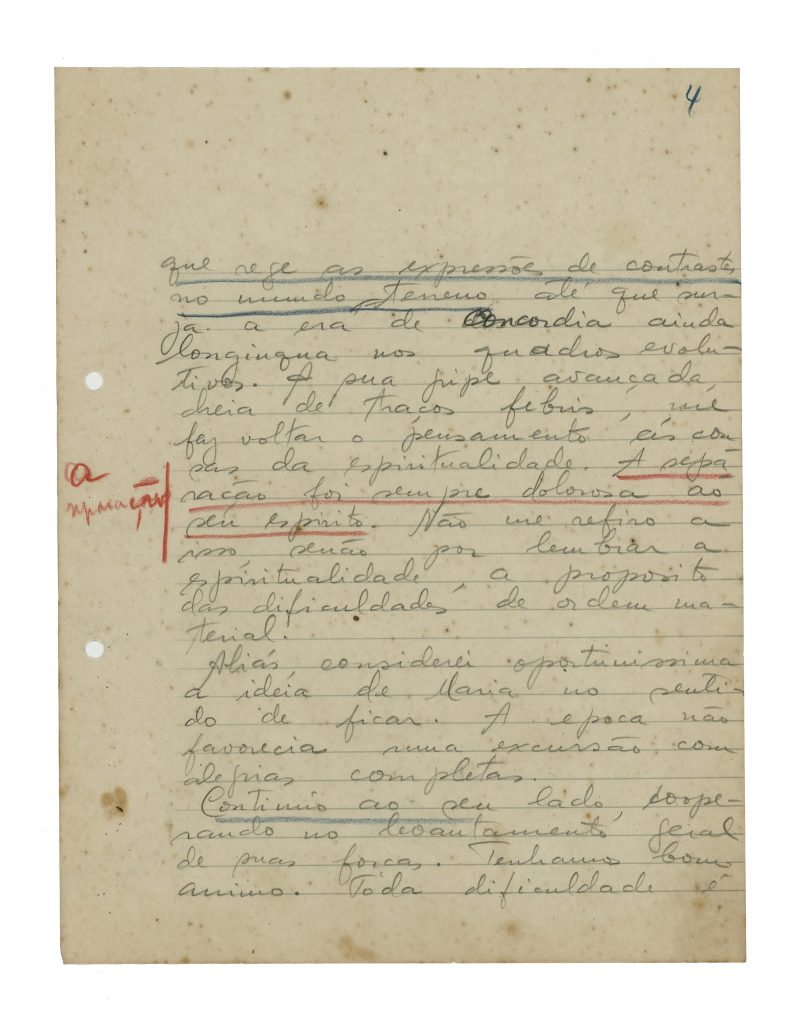 4
que rege as expressões de contrastes
no mundo terreno até que sur-
ja a era de concordia ainda
longinqua nos quadros evolu-
tivos. A sua gripe avançada,
cheia de traços febris, me
faz voltar o pensamento ás cou-
sas da espiritualidade. A sepa
ração foi sempre dolorosa ao
seu espirito. Não me refiro a
isso senão por lembrar a
espiritualidade, a proposito
das dificuldades de ordem ma-
terial.
Aliás, considerei oportunissima
a ideia de Maria no senti-
do de ficar. A epoca não
favorecia uma excursão com
alegrias completas.
Continúo ao seu lado, coope-
rando no levantamento geral
de suas forcas. Tenhamos bom
animo. Toda dificuldade é
a
separação